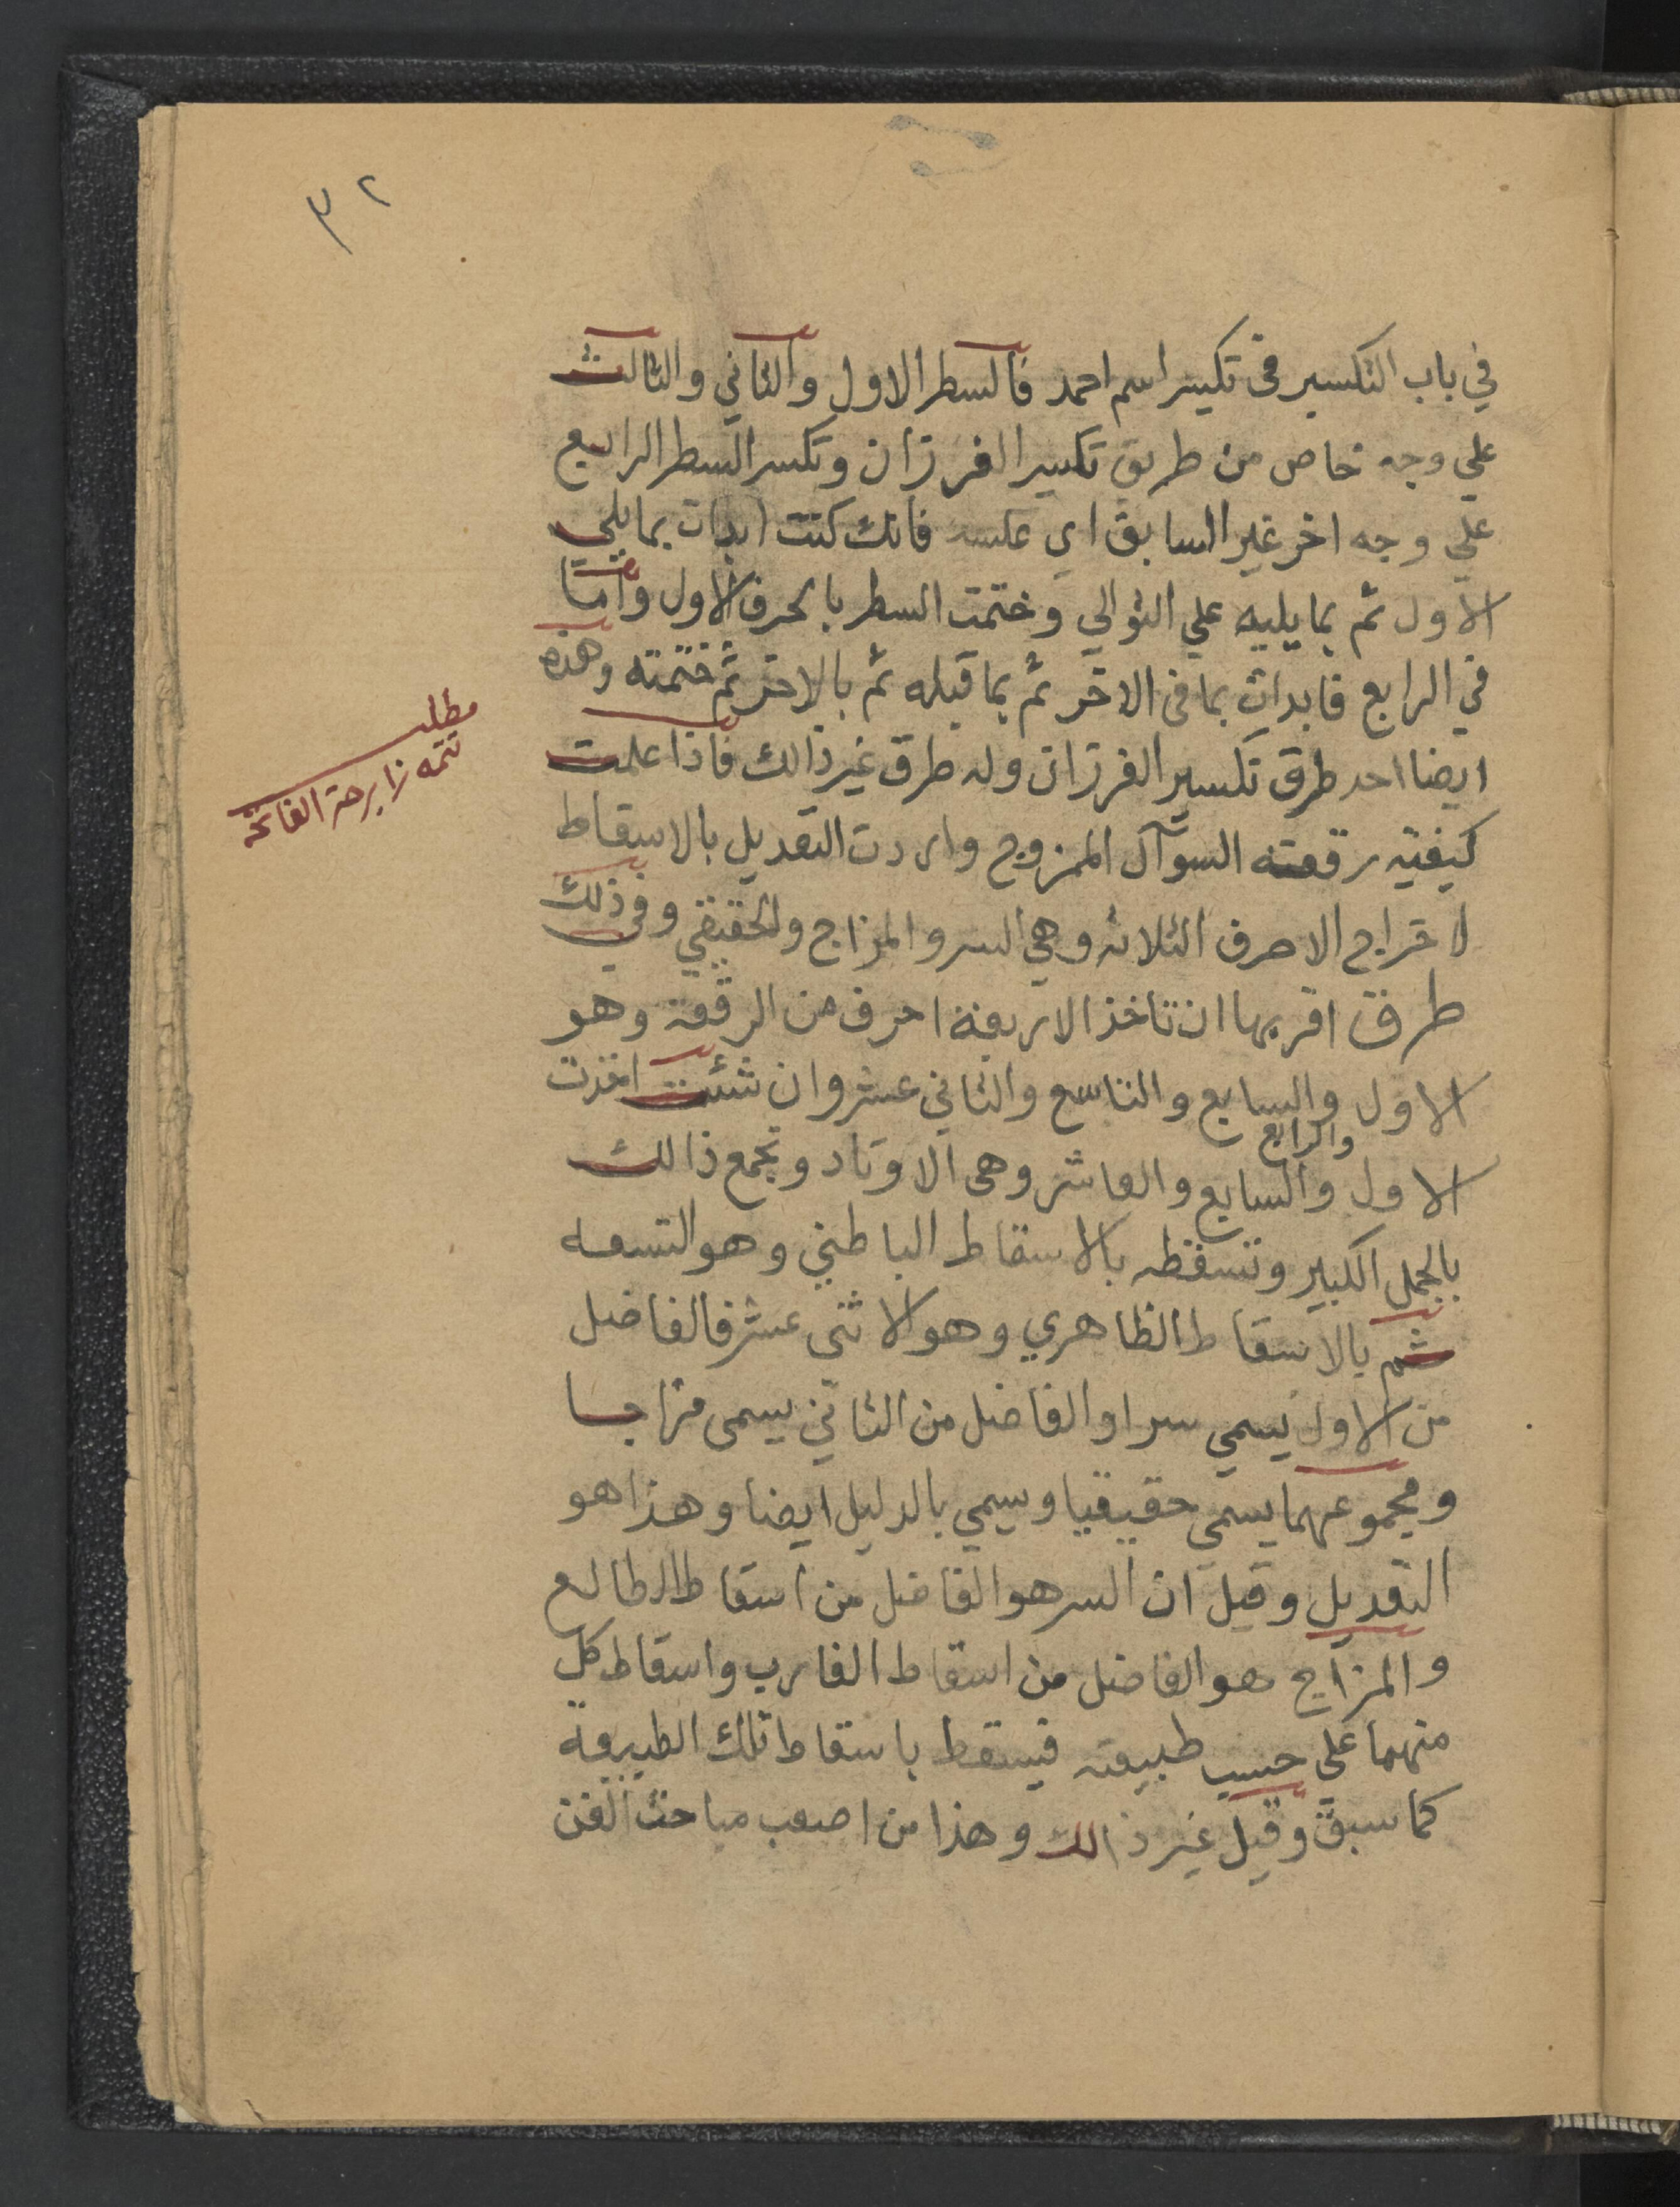 ٣٢
في باب التكسير في تكسير اسم احمد فالسطر الاول والثاني والثالث
علي وجه خاص من طريق تكسير الفرزان وتكسر السطر الرابع
علي وجه اخر غير السابق اي عكسه فانك كنت ابدات بما يلي
الاول ثم بما يليه علي التوالي وختمت السطر بالحرف الاول واما
في الرابع فابدات بما في الاخر ثم بما قبله ثم بالاخر ثم ختمته وهذه
ايضا احد طرق تكسير الفرزان وله طرق غير ذالك فاذا علمت
كيفيه رقعته السوآل الممزوج واردت التعديل بالاسقاط
لاخراج الاحرف الثلاثه وهي السر والمزاج والحقيقي وفي ذلك
طرق اقربها ان تاخذ الاربعة احرف من الرقعة وهو
الاول والسابع والتاسع والثاني عشر وان شئت اخذت
والرابع
الاول والسابع والعاشر وهي الاوتاد وتجمع ذالك
بالجمل الكبير وتسقطه بالاسقاط الباطني وهو التسعه
ثم بالاسقاط الظاهري وهو الاثني عشر فالفاضل
من الاول يسمي سرا والفاضل من الثاني يسمي مزاجا
ومجموعهما يسمي حقيقيا ويسمي بالدليل ايضا وهذا هو
التعديل وقيل ان السر هو الفاضل من اسقاط الطالع
والمزاج هو الفاضل من اسقاط الغارب واسقاط كل
منهما علي حسب طبيعته فيسقط باسقاط تلك الطبيعة
كما سبق وقيل غير ذالك وهذا من اصعب مباحث الفن
مطلب
تتمه زايرجة الفاتحة